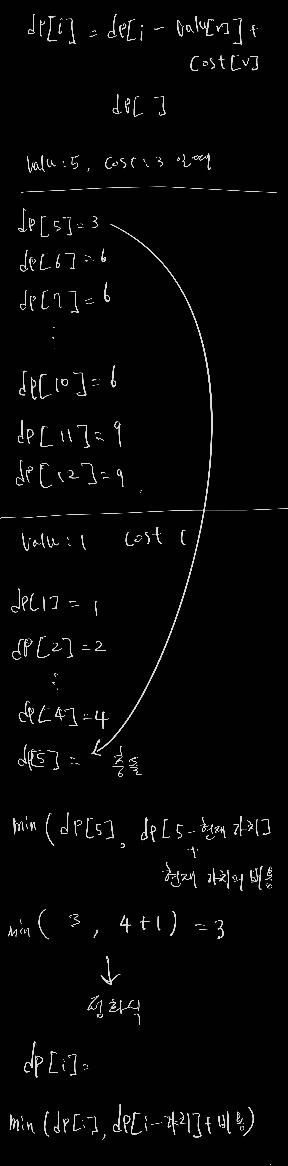 dp[i] = dp[i - value[v]] +
cost[v]
dp[ ]
value : 5, cost : 3
dp[5] = 3
dp[6] = 6
dp[7] = 6
⋮
dp[10] = 6
dp[11] = 9
dp[12] = 9
value : 1 cost 1
dp[1] = 1
dp[2] = 2
⋮
dp[4] = 4
dp[5] =
min ( dp[5], dp[5 - 현재 가치]
+
현재 가치의 비용
min ( 3 , 4+1 ) = 3
↓
점화식
dp[i] =
min (dp[i], dp[i-가치] + 비용)